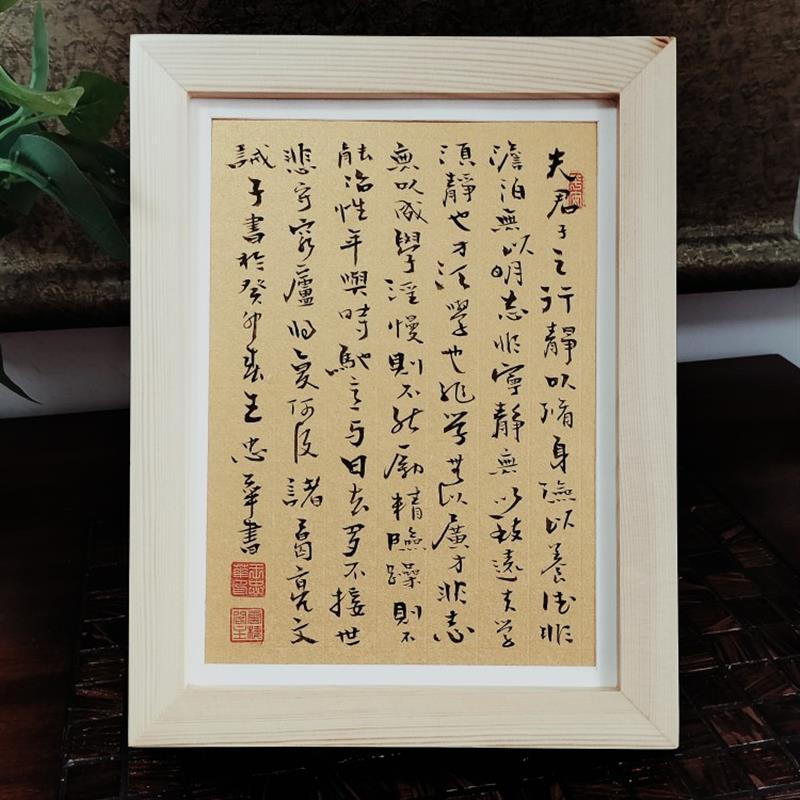 夫君子之行靜以脩身儉以養德非
澹泊無以明志非寧靜無以致遠夫學
須靜也才須學也非學無以廣才非志
無以成學淫慢則不能勵精險躁則不
能治性年與時馳意与日去多不接世
悲守窮廬將復何及諸葛亮文
誡子書於癸卯春王忠華書
王忠華印